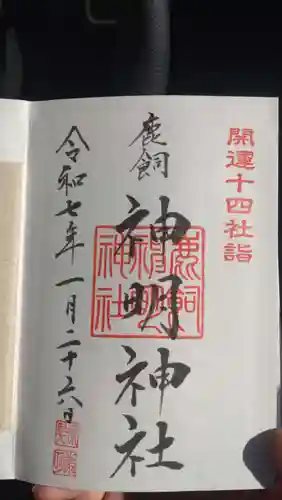 開運十四社詣
鹿飼
神明神社
鹿飼
神明
神社
令和七年一月二十六日